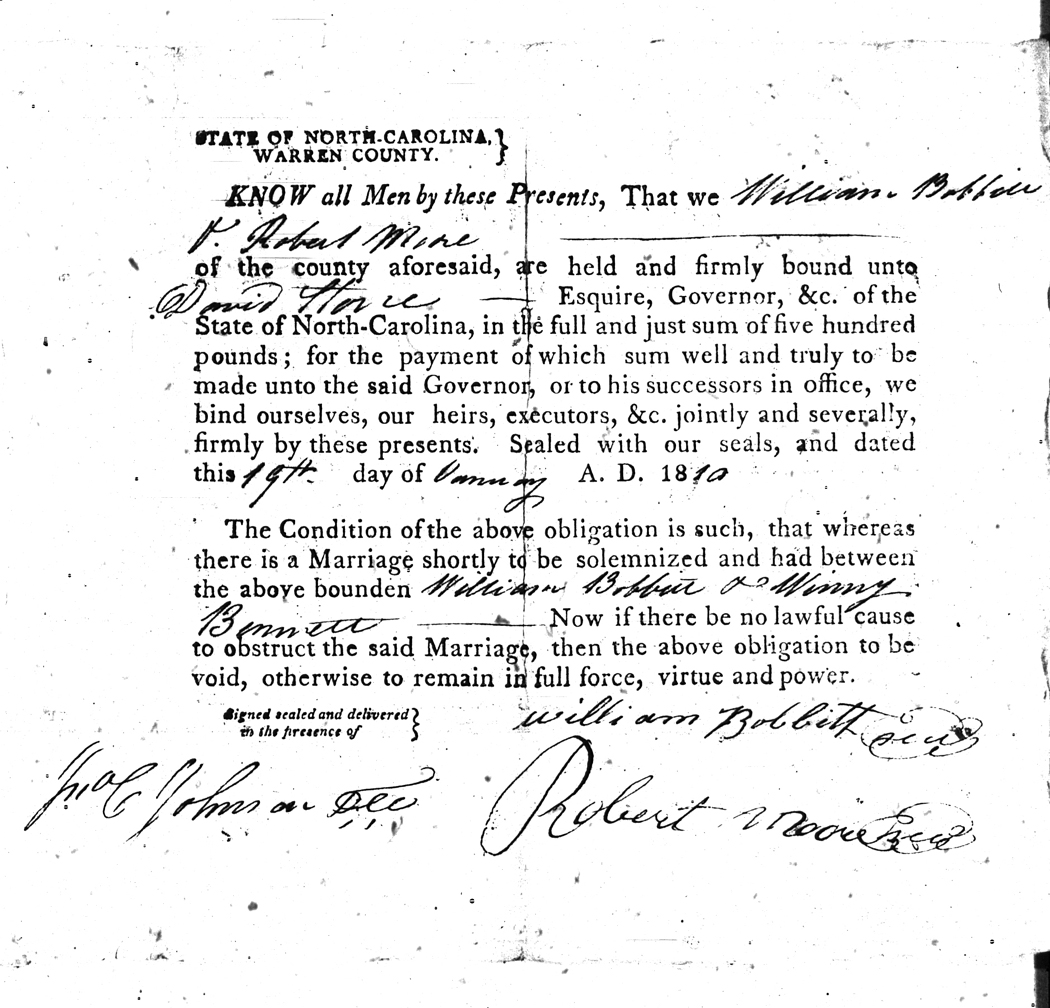 STATE OF NORTH-CAROLINA, }
WARREN COUNTY.
KNOW all Men by these Presents, That we William Bobbitt
& Robert Moore
of the county aforesaid, are held and firmly bound unto
David Stone — Esquire, Governor, &c. of the
State of North-Carolina, in the full and just sum of five hundred
pounds; for the payment of which sum well and truly to be
made unto the said Governor, or to his successors in office, we
bind ourselves, our heirs, executors, &c. jointly and severally,
firmly by these presents. Sealed with our seals, and dated
this 19th. day of January A. D. 1810
The Condition of the above obligation is such, that whereas
there is a Marriage shortly to be solemnized and had between
the above bounden William Bobbitt & Winny
Bennett — Now if there be no lawful cause
to obstruct the said Marriage, then the above obligation to be
void, otherwise to remain in full force, virtue and power.
Signed sealed and delivered }
in the presence of
William Bobbitt seal
Jno C Johnson
Robert Moore seal